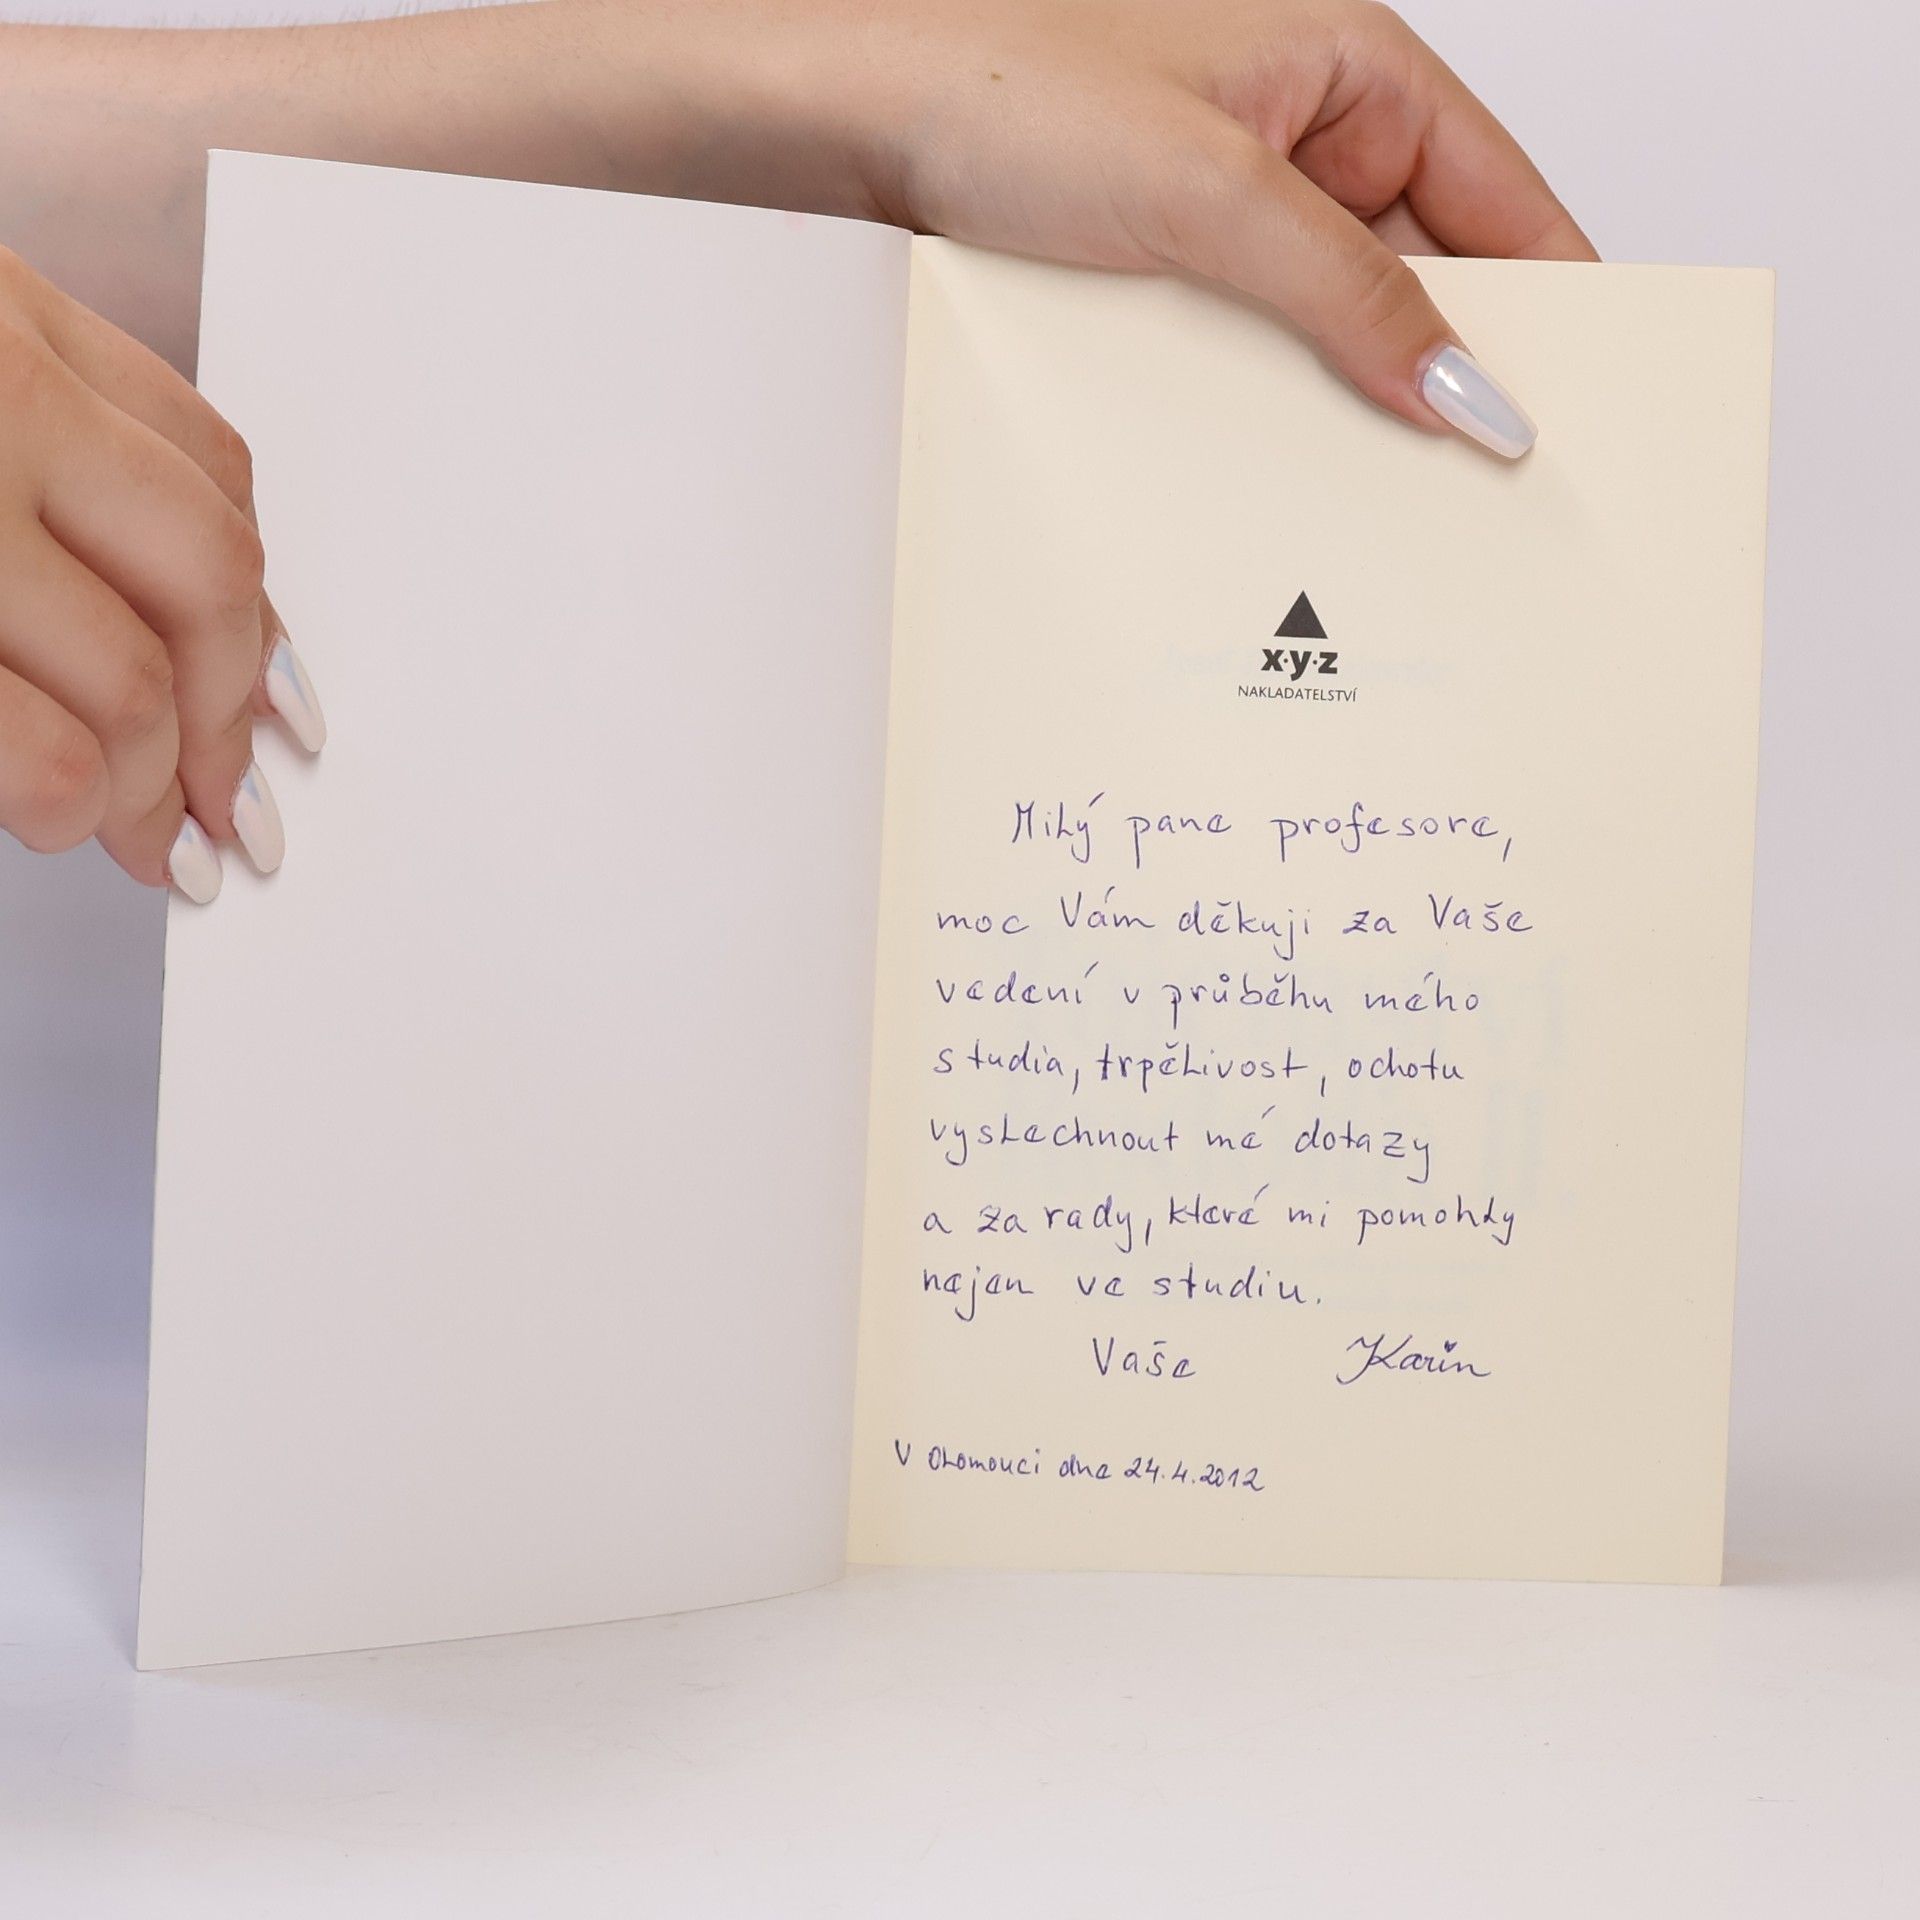 x·y·z
NAKLADATELSTVÍ
Milý pane profesore,
moc Vám děkuji za Vaše
vedení v průběhu mého
studia, trpělivost, ochotu
vyslechnout mé dotazy
a za rady, které mi pomohly
nejen ve studiu.
Vaše Karin
V Olomouci dne 24.4.2012